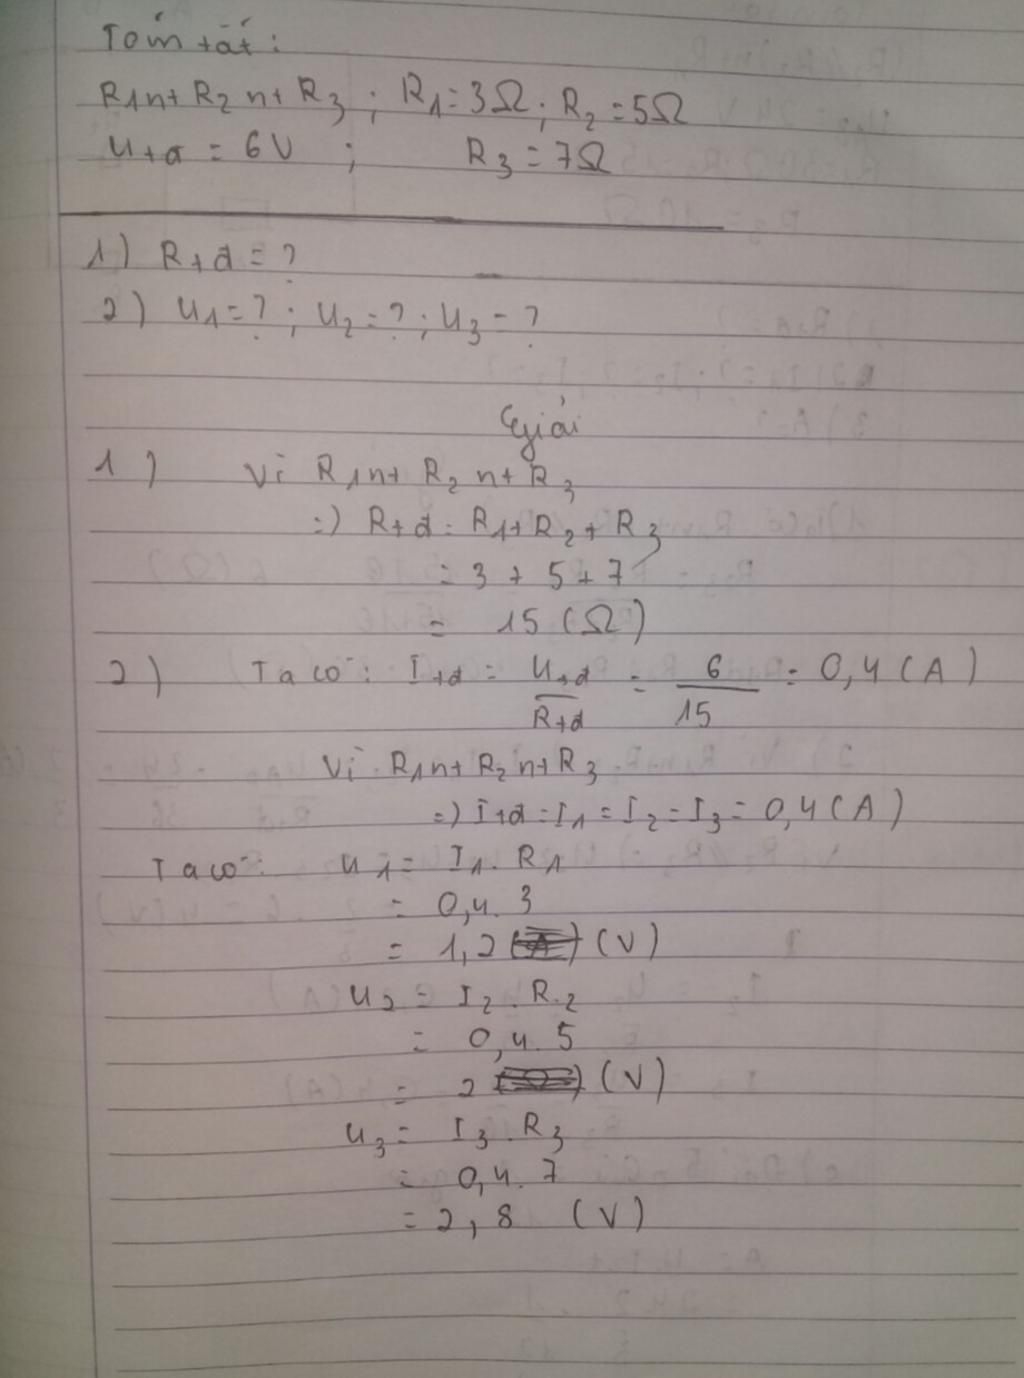 Tóm tắt:
R1 nt R2 nt R3 ; R1 = 3Ω ; R2 = 5Ω
Utđ = 6V ; R3 = 7Ω
1) Rtđ = ?
2) U1 = ? ; U2 = ? ; U3 = ?
Giải
1) Vì R1 nt R2 nt R3
=) Rtđ = R1 + R2 + R3
= 3 + 5 + 7
= 15 (Ω)
2) Ta có: Itđ = Utđ/Rtđ = 6/15 = 0,4 (A)
Vì R1 nt R2 nt R3
=) Itđ = I1 = I2 = I3 = 0,4 (A)
Ta có: U1 = I1 . R1
= 0,4 . 3
= 1,2 (V)
U2 = I2 . R2
= 0,4 . 5
= 2 (V)
U3 = I3 . R3
= 0,4 . 7
= 2,8 (V)